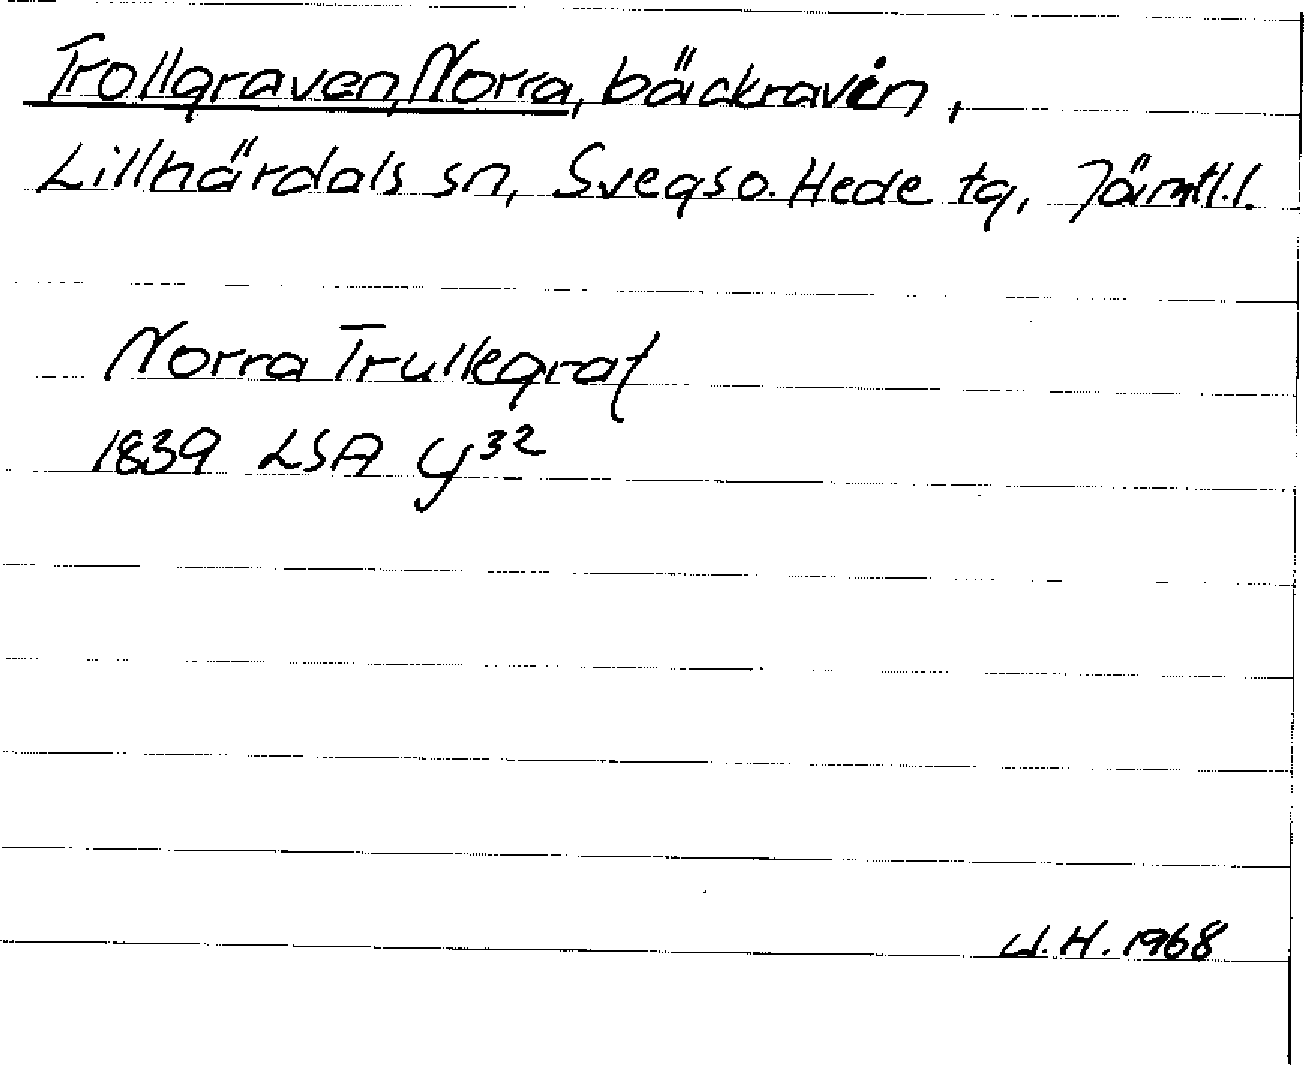 Trollgraven, Norra, bäckravin,
Lillhärdals sn, Svegs o. Hede tg, Jämtl.l.
Norra Trullegraf
1839 LSA y³²
W.H. 1968